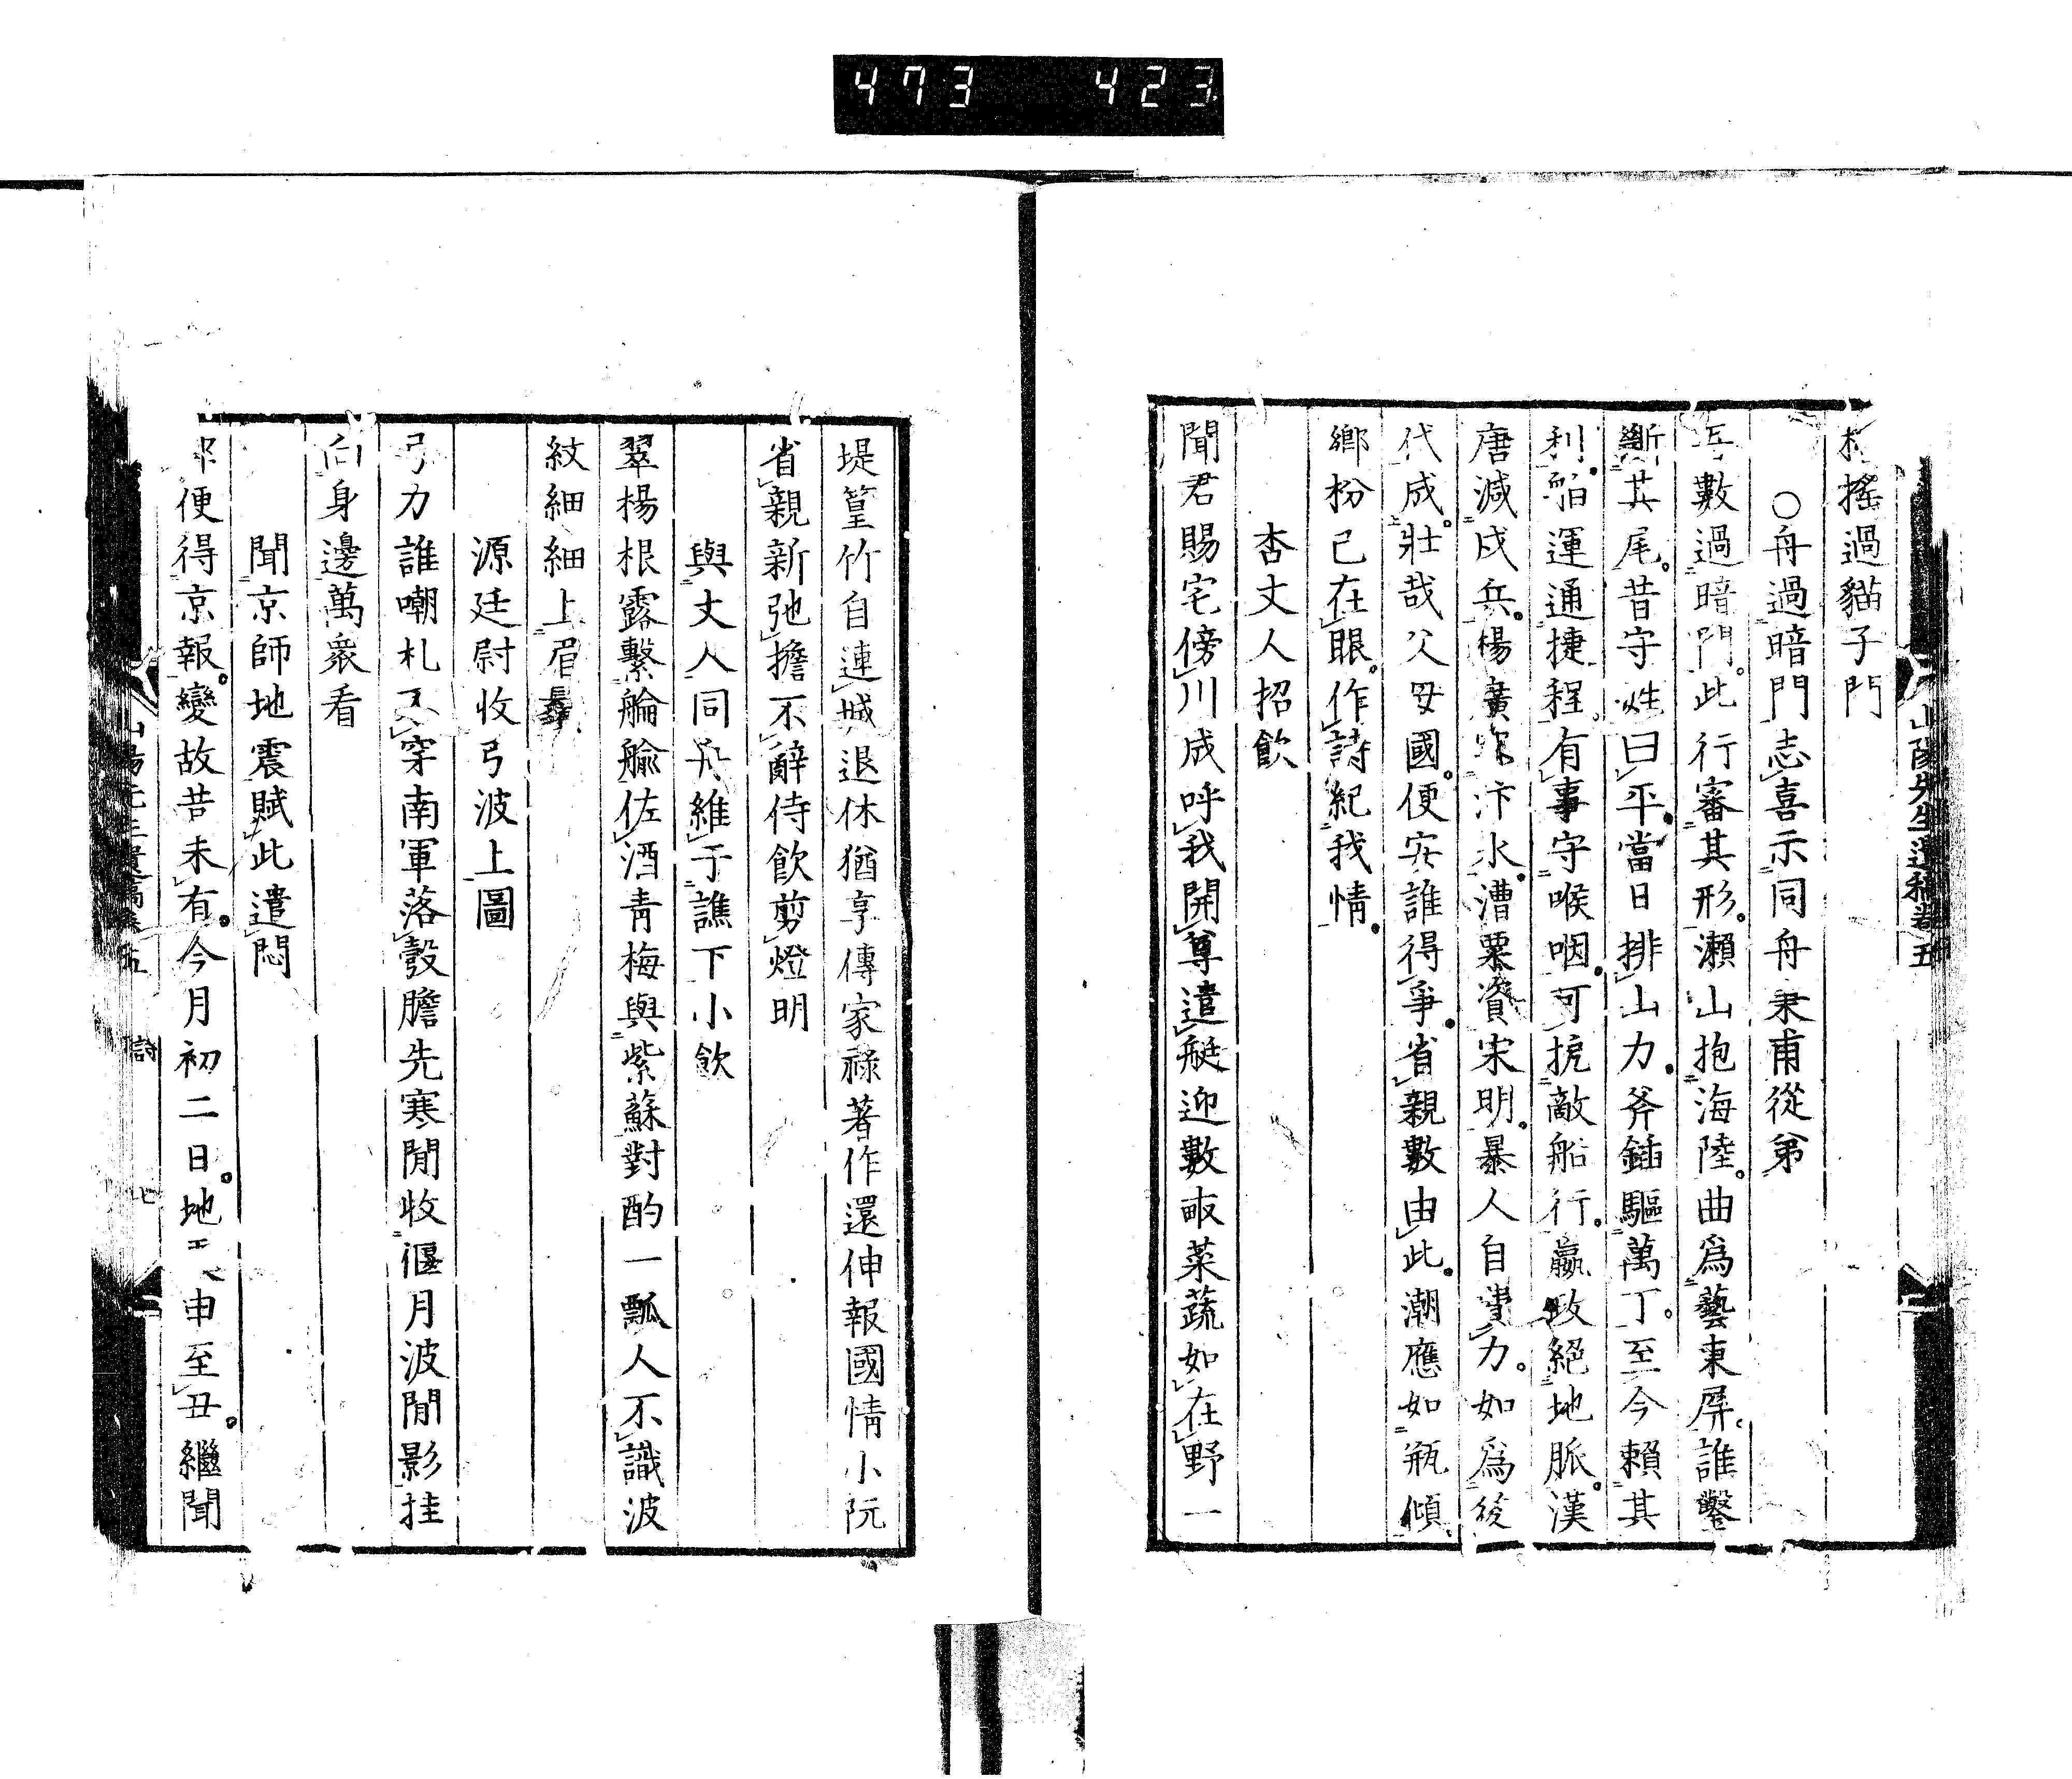 473 423
搖過貓子門
○舟過暗門志喜示同舟耒甫從弟
數過暗門。此行審其形。瀨山抱海陸。曲爲藝東屏。誰鑿
斷其尾。昔守姓曰平。當日排山力。斧鍤驅萬丁。至今賴其
利。舶運通捷程。有事守喉咽。可扼敵船行。嬴政絕地脈。漢
唐減戍兵。楊廣汴水。漕粟資宋明。暴人自費力。如爲後
代成。壯哉父母國。便安誰得爭。省親數由此。潮應如瓶傾。
鄉枌已在眼。作詩紀我情。
杏丈人招飲
聞君賜宅傍川成呼我開尊遣艇迎數畝菜蔬如在野一
堤篁竹自連城退休猶享傳家祿著作還伸報國情小阮
省親新弛擔不辭侍飲剪燈明
與丈人同舟維于譙下小飲
翠楊根露繫艙艙佐酒青梅與紫蘇對酌一瓢人不識波
紋細細上眉鬚
源廷尉收弓波上圖
弓力誰嘲札不穿南軍落彀膽先寒閒收偃月波閒影挂
向身邊萬衆看
聞京師地震賦此遣悶
便得京報。變故昔未有。今月初二日。地申至丑。繼聞
山陽先生遺稿卷五
詩
七